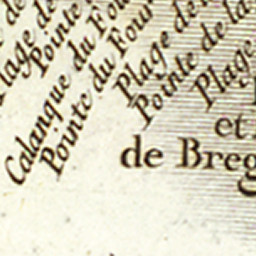 de
Plage de
Pointe
Calanque du Fou
Pointe du Four
Plage de
Pointe de la
Plage
et
de Breg